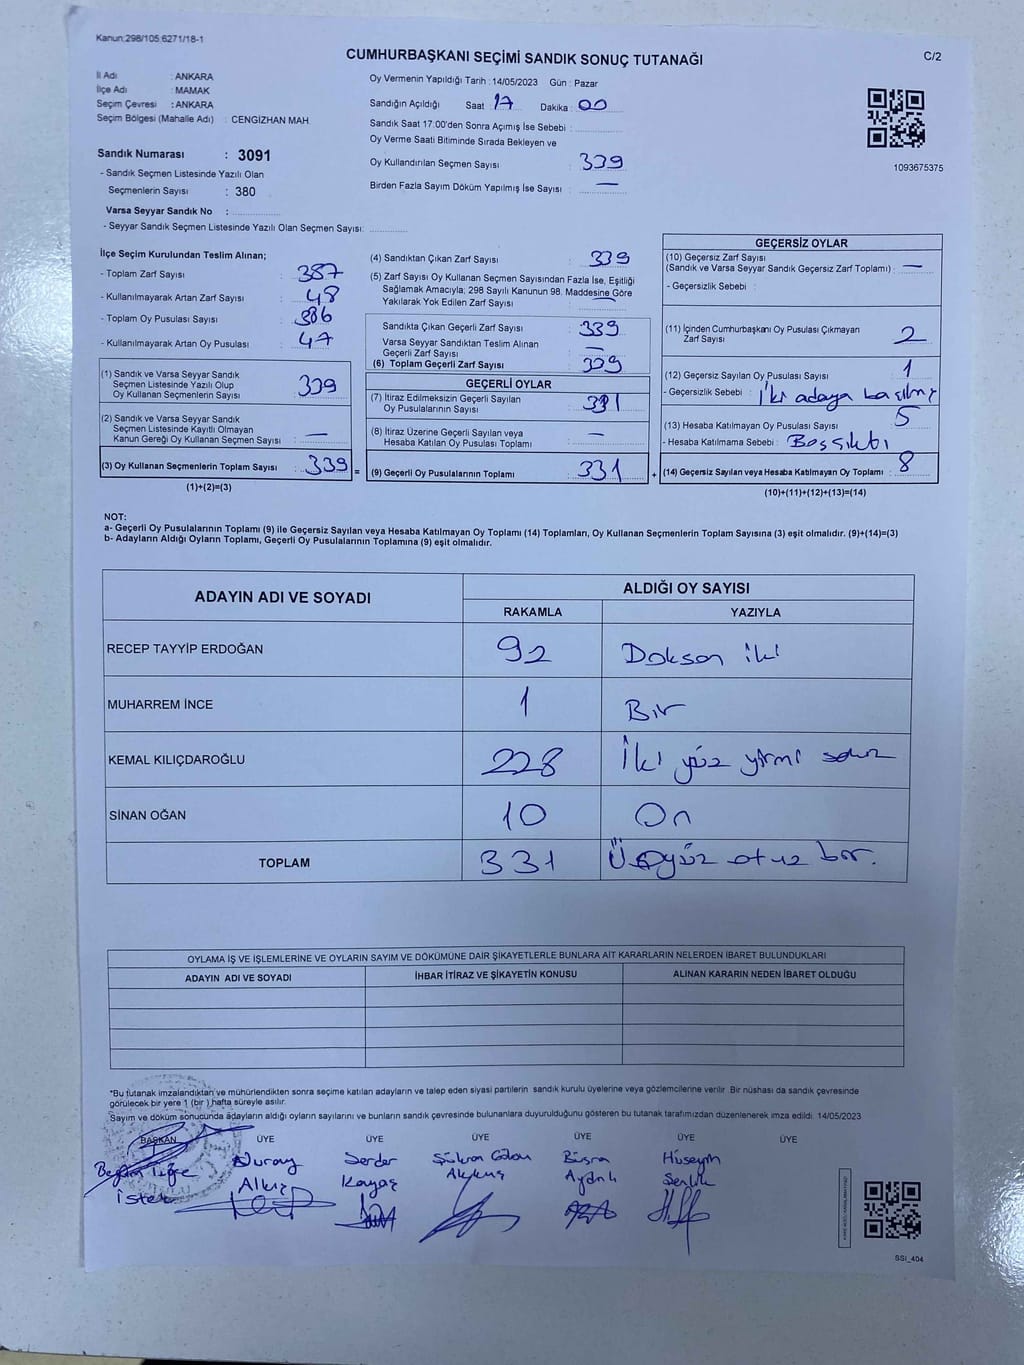 Kanun;298/105;6271/18-1
CUMHURBAŞKANI SEÇİMİ SANDIK SONUÇ TUTANAĞI
C/2
İl Adı : ANKARA
İlçe Adı : MAMAK
Seçim Çevresi : ANKARA
Seçim Bölgesi (Mahalle Adı) : CENGİZHAN MAH.
Oy Vermenin Yapıldığı Tarih : 14/05/2023 Gün : Pazar
Sandığın Açıldığı Saat 17 Dakika : 00
Sandık Saat 17:00'den Sonra Açımış İse Sebebi :
Oy Verme Saati Bitiminde Sırada Bekleyen ve
Oy Kullandırılan Seçmen Sayısı : 339
Birden Fazla Sayım Döküm Yapılmış İse Sayısı : —
1093675375
Sandık Numarası : 3091
- Sandık Seçmen Listesinde Yazılı Olan
Seçmenlerin Sayısı : 380
Varsa Seyyar Sandık No :
- Seyyar Sandık Seçmen Listesinde Yazılı Olan Seçmen Sayısı:
İlçe Seçim Kurulundan Teslim Alınan;
- Toplam Zarf Sayısı : 387
- Kullanılmayarak Artan Zarf Sayısı : 48
- Toplam Oy Pusulası Sayısı : 386
- Kullanılmayarak Artan Oy Pusulası : 47
(1) Sandık ve Varsa Seyyar Sandık
Seçmen Listesinde Yazılı Olup
Oy Kullanan Seçmenlerin Sayısı : 339
(2) Sandık ve Varsa Seyyar Sandık
Seçmen Listesinde Kayıtlı Olmayan
Kanun Gereği Oy Kullanan Seçmen Sayısı : —
(3) Oy Kullanan Seçmenlerin Toplam Sayısı : 339 =
(1)+(2)=(3)
(4) Sandıktan Çıkan Zarf Sayısı : 339
(5) Zarf Sayısı Oy Kullanan Seçmen Sayısından Fazla İse, Eşitliği
Sağlamak Amacıyla; 298 Sayılı Kanunun 98. Maddesine Göre
Yakılarak Yok Edilen Zarf Sayısı : —
Sandıkta Çıkan Geçerli Zarf Sayısı : 339
Varsa Seyyar Sandıktan Teslim Alınan
Geçerli Zarf Sayısı : —
(6) Toplam Geçerli Zarf Sayısı : 339
GEÇERLİ OYLAR
(7) İtiraz Edilmeksizin Geçerli Sayılan
Oy Pusulalarının Sayısı : 331
(8) İtiraz Üzerine Geçerli Sayılan veya
Hesaba Katılan Oy Pusulası Toplamı : —
(9) Geçerli Oy Pusulalarının Toplamı : 331 +
GEÇERSİZ OYLAR
(10) Geçersiz Zarf Sayısı
(Sandık ve Varsa Seyyar Sandık Geçersiz Zarf Toplamı) : —
- Geçersizlik Sebebi :
(11) İçinden Cumhurbaşkanı Oy Pusulası Çıkmayan
Zarf Sayısı : 2
(12) Geçersiz Sayılan Oy Pusulası Sayısı : 1
- Geçersizlik Sebebi : İki adaya basılmış
(13) Hesaba Katılmayan Oy Pusulası Sayısı : 5
- Hesaba Katılmama Sebebi : Boş çıktı
(14) Geçersiz Sayılan veya Hesaba Katılmayan Oy Toplamı : 8
(10)+(11)+(12)+(13)=(14)
NOT:
a- Geçerli Oy Pusulalarının Toplamı (9) ile Geçersiz Sayılan veya Hesaba Katılmayan Oy Toplamı (14) Toplamları, Oy Kullanan Seçmenlerin Toplam Sayısına (3) eşit olmalıdır. (9)+(14)=(3)
b- Adayların Aldığı Oyların Toplamı, Geçerli Oy Pusulalarının Toplamına (9) eşit olmalıdır.
ADAYIN ADI VE SOYADI ALDIĞI OY SAYISI
RAKAMLA YAZIYLA
RECEP TAYYİP ERDOĞAN 92 Doksan iki
MUHARREM İNCE 1 Bir
KEMAL KILIÇDAROĞLU 228 İki yüz yirmi sekiz
SİNAN OĞAN 10 On
TOPLAM 331 Üçyüz otuz bir.
OYLAMA İŞ VE İŞLEMLERİNE VE OYLARIN SAYIM VE DÖKÜMÜNE DAİR ŞİKAYETLERLE BUNLARA AİT KARARLARIN NELERDEN İBARET BULUNDUKLARI
ADAYIN ADI VE SOYADI İHBAR İTİRAZ VE ŞİKAYETİN KONUSU ALINAN KARARIN NEDEN İBARET OLDUĞU
*Bu tutanak imzalandıktan ve mühürlendikten sonra seçime katılan adayların ve talep eden siyasi partilerin sandık kurulu üyelerine veya gözlemcilerine verilir. Bir nüshası da sandık çevresinde
görülecek bir yere 1 (bir ) hafta süreyle asılır.
Sayım ve döküm sonucunda adayların aldığı oyların sayılarını ve bunların sandık çevresinde bulunanlara duyurulduğunu gösteren bu tutanak tarafımızdan düzenlenerek imza edildi. 14/05/2023
BAŞKAN ÜYE ÜYE ÜYE ÜYE ÜYE ÜYE
Nuray Serdar Şükran Büşra Hüseyin
SSI_404